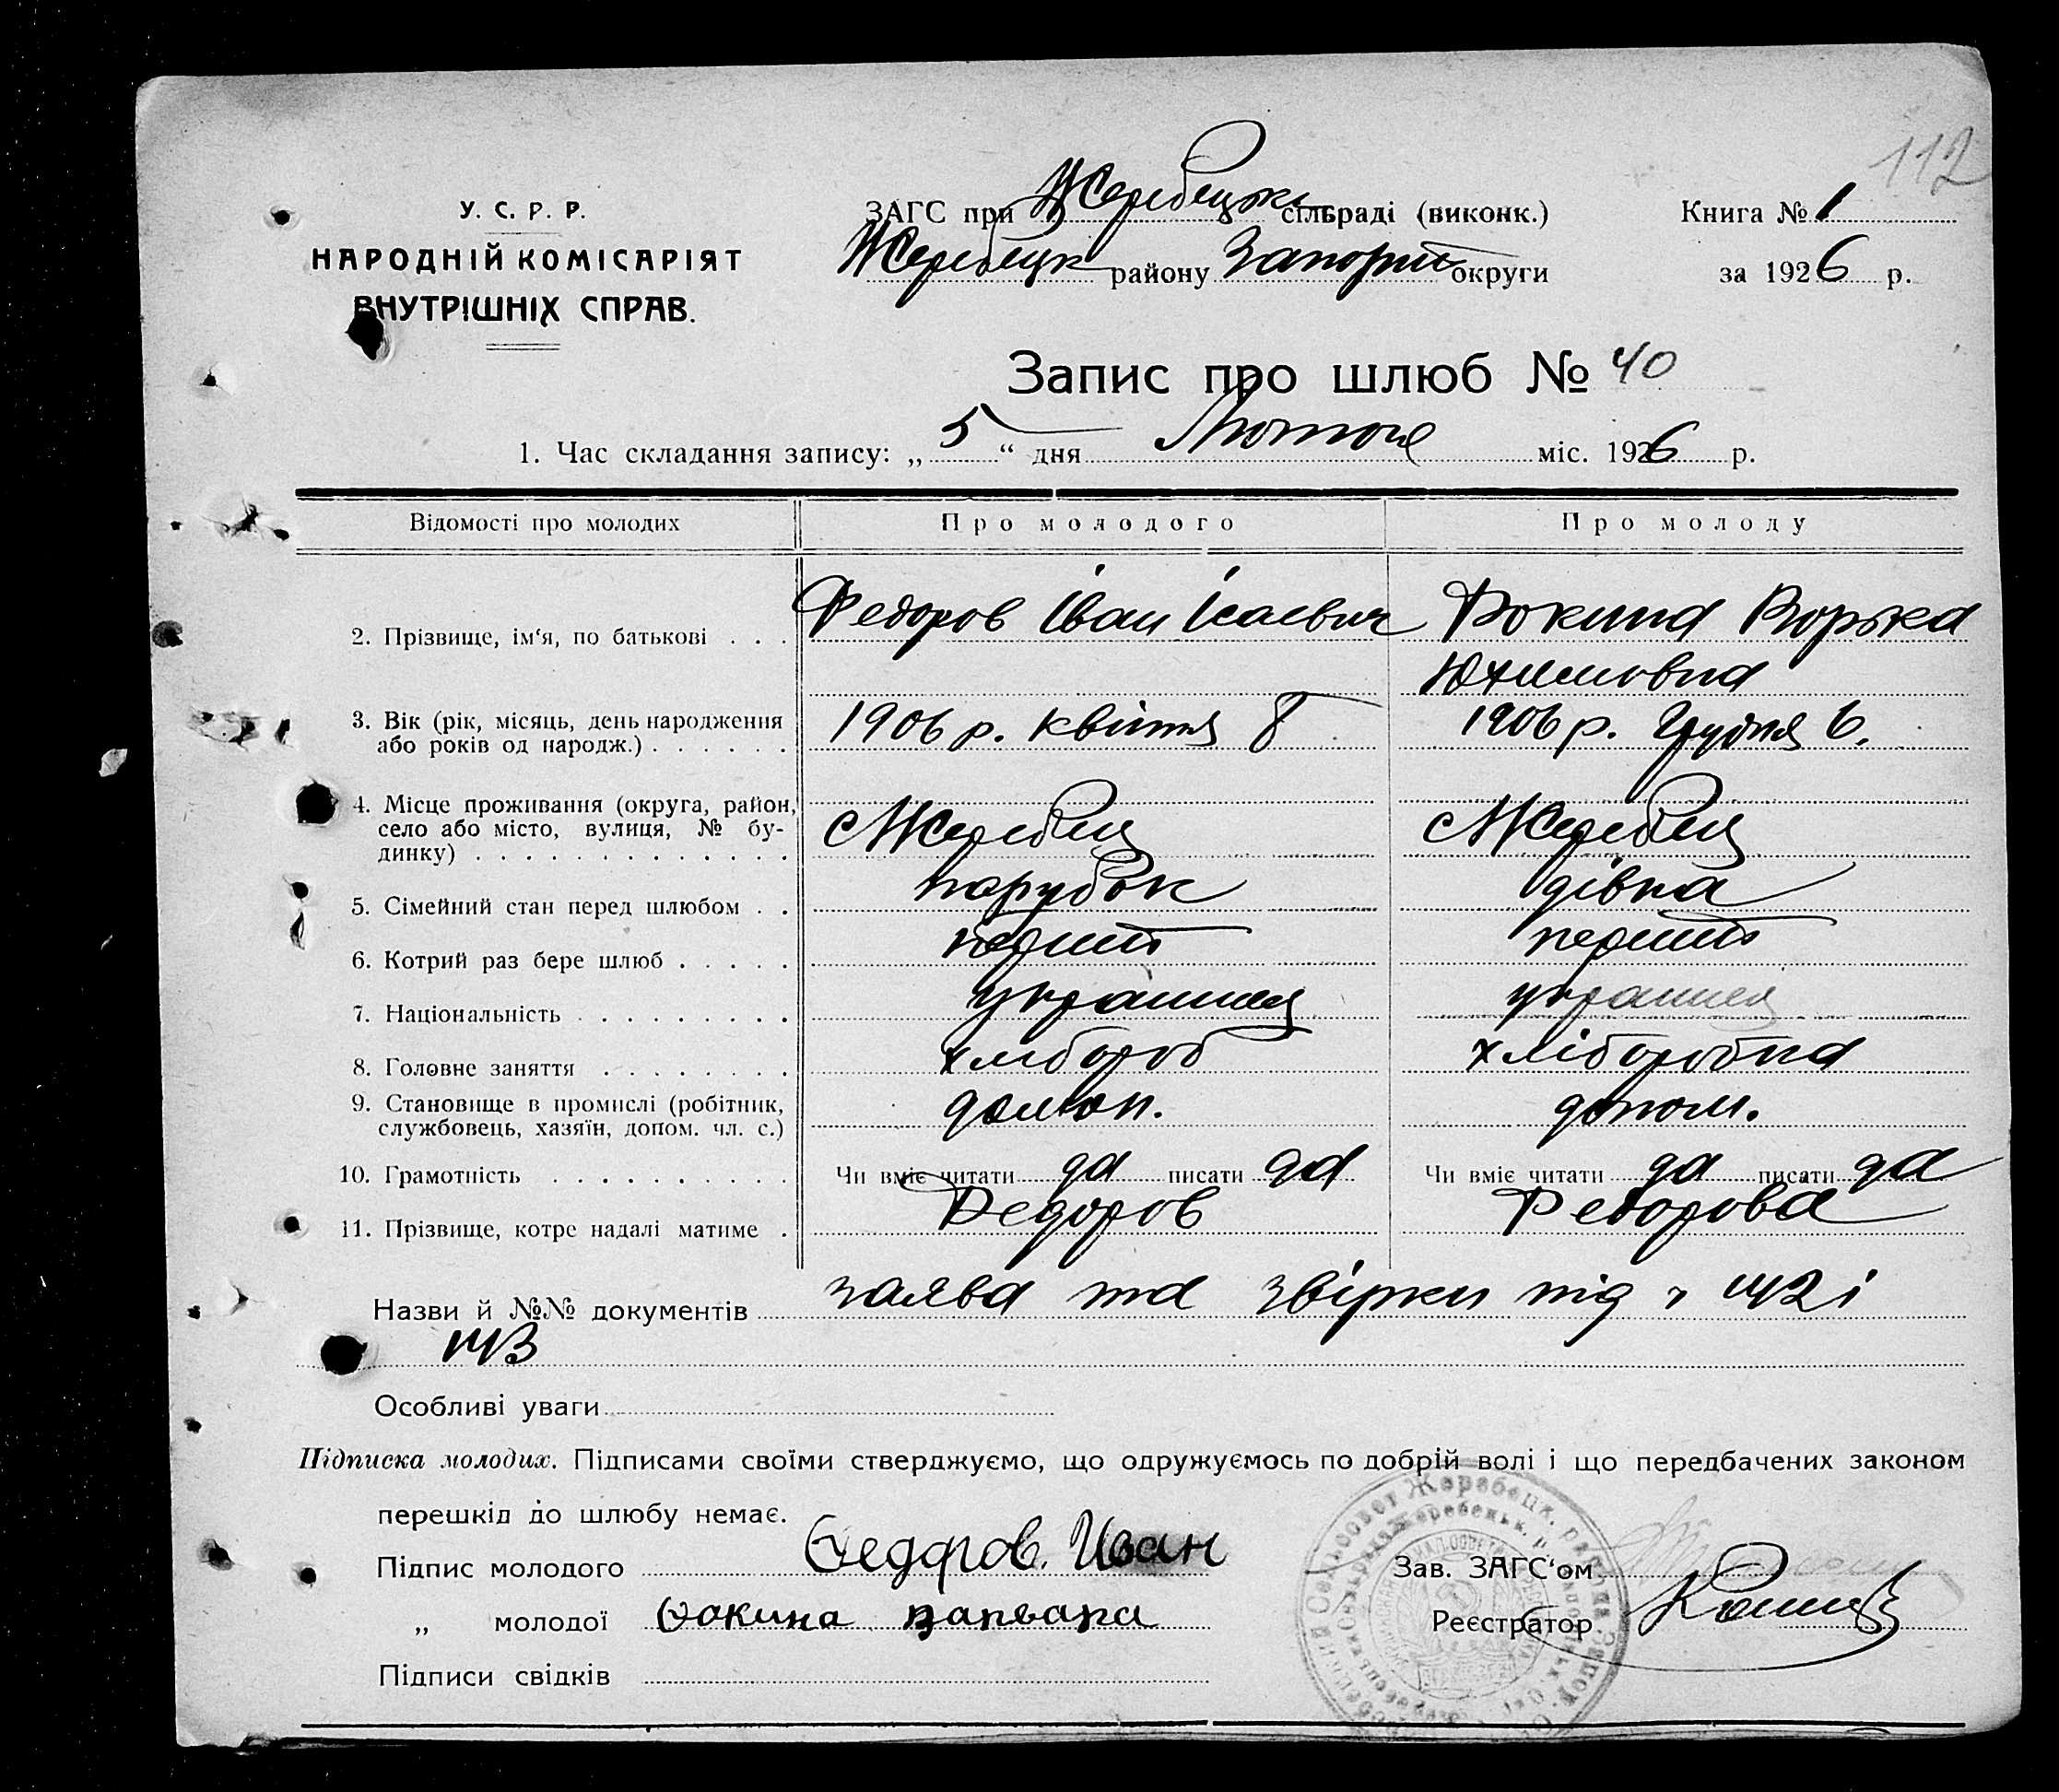 112
У. С. Р. Р.
НАРОДНІЙ КОМІСАРІЯТ
ВНУТРІШНІХ СПРАВ.
ЗАГС при Жеребецькі сільраді (виконк.)
Жеребецк району Запоріж округи
Книга № 1
за 1926 р.
Запис про шлюб № 40
1. Час складання запису: „ 5 “ дня Лютого міс. 1926 р.
Відомості про молодих Про молодого Про молоду
2. Прізвище, ім‘я, по батькові . . . Федоров Іван Ісаевич Фокина Ворька
Юхимовна
3. Вік (рік, місяць, день народження 1906 р. квітня 8 1906 р. Грудня 6.
або років од народж.) . . . . . .
4. Місце проживання (округа, район, с Жеребец с Жеребец
село або місто, вулиця, № бу-
динку) . . . . . . . . . . . . .
5. Сімейний стан перед шлюбом . . парубок дівка
6. Котрий раз бере шлюб . . . . . перший перший
7. Національність . . . . . . . . . україниец украинец
8. Головне заняття . . . . . . . . хлібороб хліборобка
9. Становище в промислі (робітник, допом.
службовець, хазяїн, допом. чл. с.)
10. Грамотність . . . . . . . . . . Чи вміє читати да писати да Чи вміє читати да писати да
11. Прізвище, котре надалі матиме . Федоров Федорова
Назви й №№ документів заява та звірки під ч 1142 і
1143
Особливі уваги
Підписка молодих. Підписами своїми стверджуємо, що одружуємось по добрій волі і що передбачених законом
перешкід до шлюбу немає.
Підпис молодого Федоров. Иван
Зав. ЗАГС‘ом
„ молодої Фокина варвара
Реєстратор
Підписи свідків